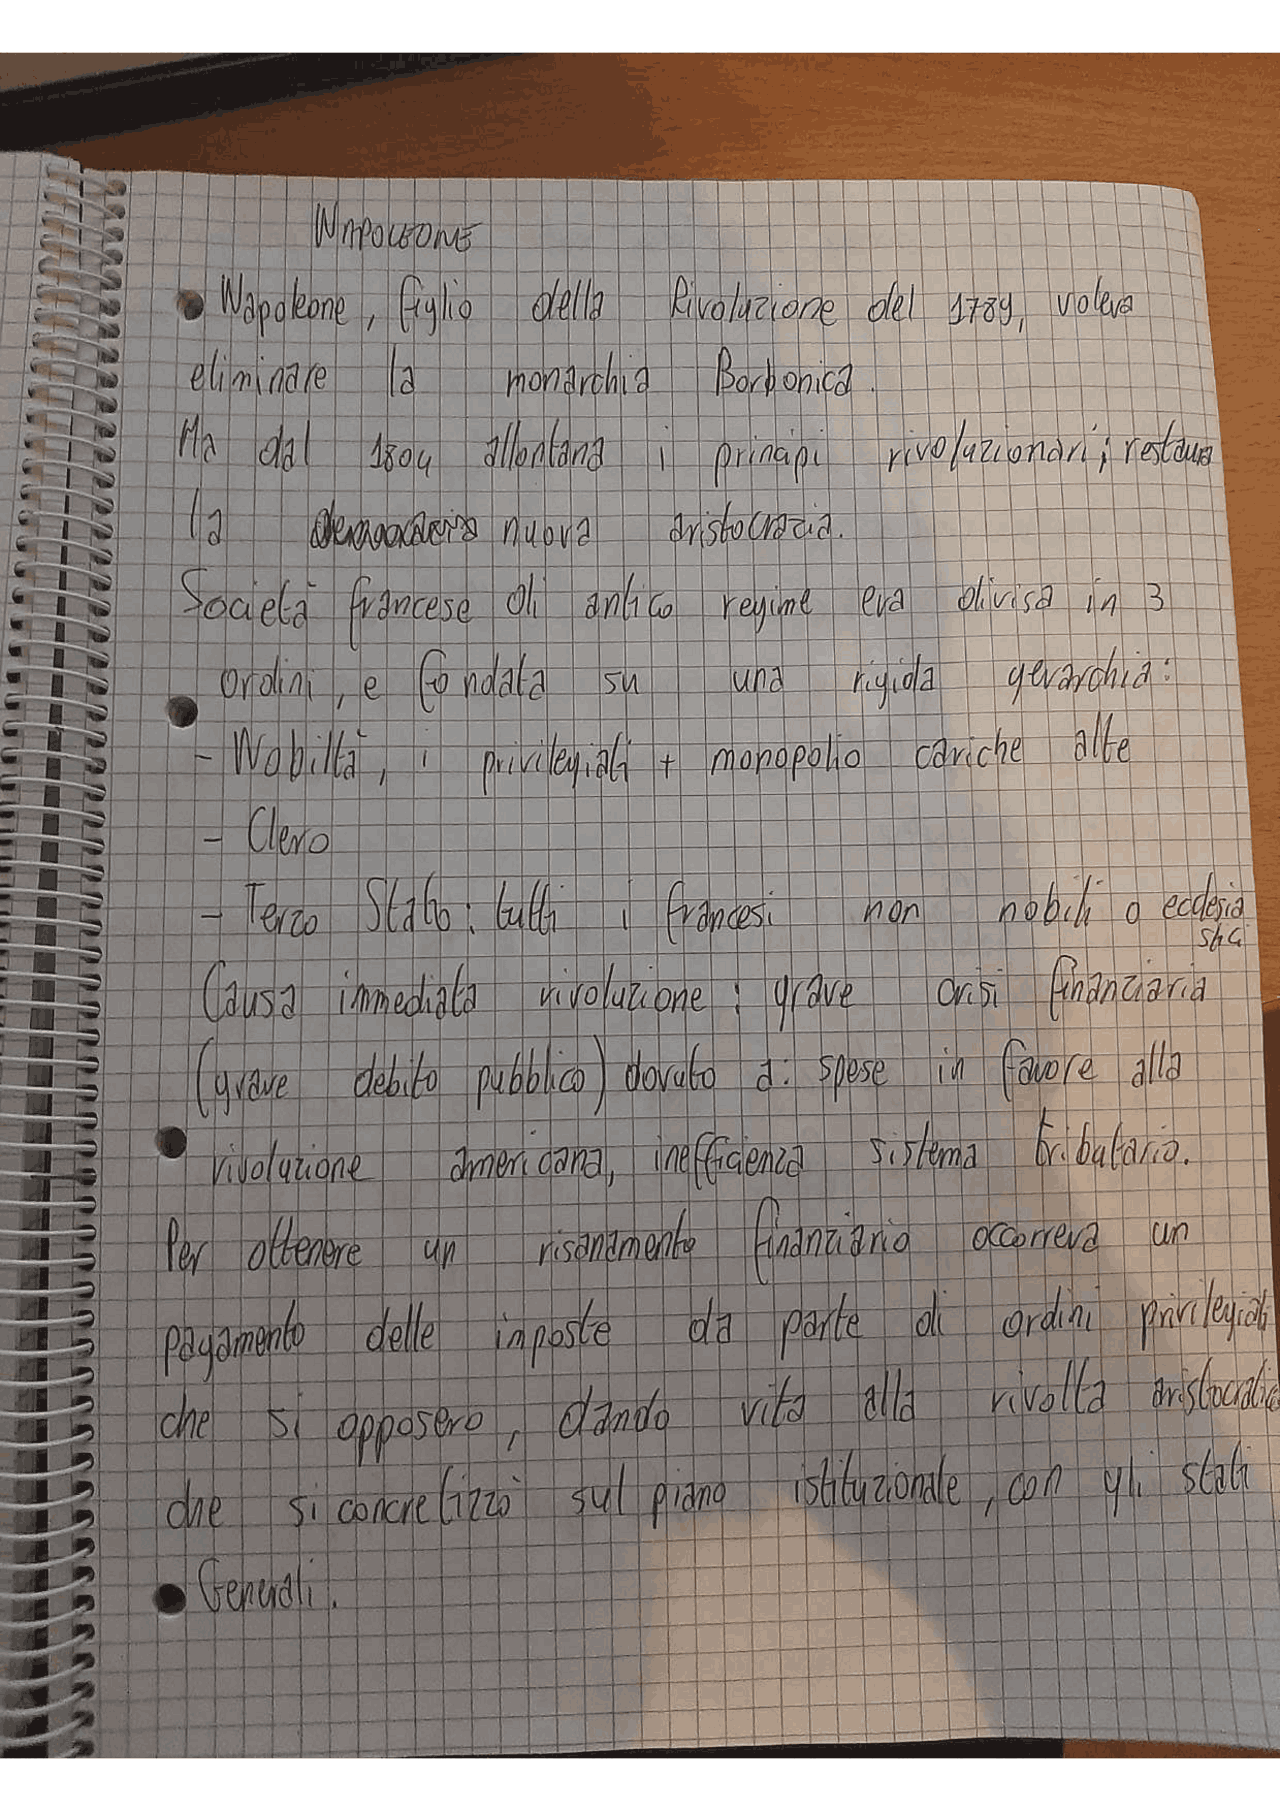 NAPOLEONE
Napoleone, figlio della Rivoluzione del 1789, voleva
eliminare la monarchia Borbonica.
Ma dal 1804 allontana i principi rivoluzionari; restaura
la nuova aristocrazia.
Società francese di antico regime era divisa in 3
ordini, e fondata su una rigida gerarchia:
- Nobiltà, i privilegiati + monopolio cariche alte
- Clero
- Terzo Stato: tutti i francesi non nobili o ecclesia
stici
Causa immediata rivoluzione: grave crisi finanziaria
(grave debito pubblico) dovuto a: spese in favore alla
rivoluzione americana, inefficienza sistema tributario.
Per ottenere un risanamento finanziario occorreva un
pagamento delle imposte da parte di ordini privilegiati
che si opposero, dando vita alla rivolta aristocratica
che si concretizzò sul piano istituzionale, con gli stati
Generali.